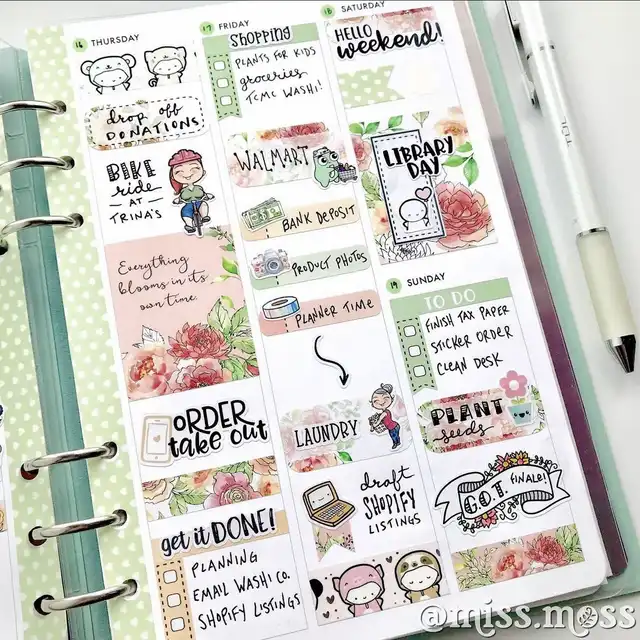 16 THURSDAY
drop off
DONATIONS
BIKE
ride
AT
TRINA'S
Everything
blooms in its
own time.
ORDER
take out
get it DONE!
PLANNING
EMAIL WASHI CO.
SHOPIFY LISTINGS
17 FRIDAY
shopping
PLANTS FOR KIDS
groceries
TCMC WASHI!
WALMART
BANK DEPOSIT
PRODUCT PHOTOS
PLANNER TIME
LAUNDRY
draft
SHOPIFY
LISTINGS
18 SATURDAY
HELLO
weekend!
LIBRARY
DAY
19 SUNDAY
TO DO
FINISH TAX PAPER
STICKER ORDER
CLEAN DESK
PLANT
seeds
G.O.T. FINALE!
TUL
@miss.moss